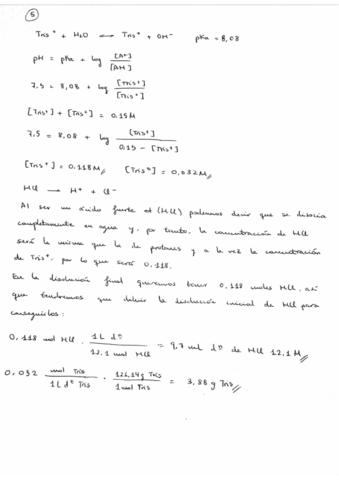 5
Tris⁺ + H₂O ⟶ Tris⁺ + OH⁻ pKa = 8,08
pH = pKa + log [A⁻] / [AH]
7.5 = 8,08 + log [Tris⁺] / [Tris⁺]
[Tris⁺] + [Tris⁺] = 0.15M
7.5 = 8,08 + log [Tris⁺] / 0.15 - [Tris⁺]
[Tris⁺] = 0.118M [Tris⁺] = 0,032M
HCl ⟶ H⁺ + Cl⁻
Al ser un ácido fuerte el (HCl) podemos decir que se disocia
completamente en agua y, por tanto, la concentración de HCl
será la misma que la de protones y a la vez la concentración
de Tris⁺, por lo que será 0,118.
En la disolución final queremos tener 0,118 moles HCl, así
que tendremos que diluir la disolución inicial de HCl para
conseguirlos:
0,118 mol HCl · 1L dº / 12,1 mol HCl = 9,7 mL dº de HCl 12,1M
0,032 mol Tris / 1L dº Tris · 121,14g Tris / 1mol Tris = 3,88 g Tris